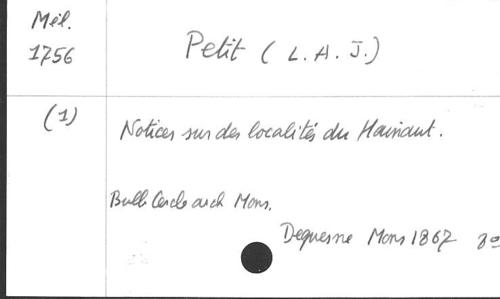 Mél.
1756
Petit (L. A. J.)
(1)
Notices sur des localités du Hainaut.
Bull Cercle arch Mons.
Dequesne Mons 1867 8º